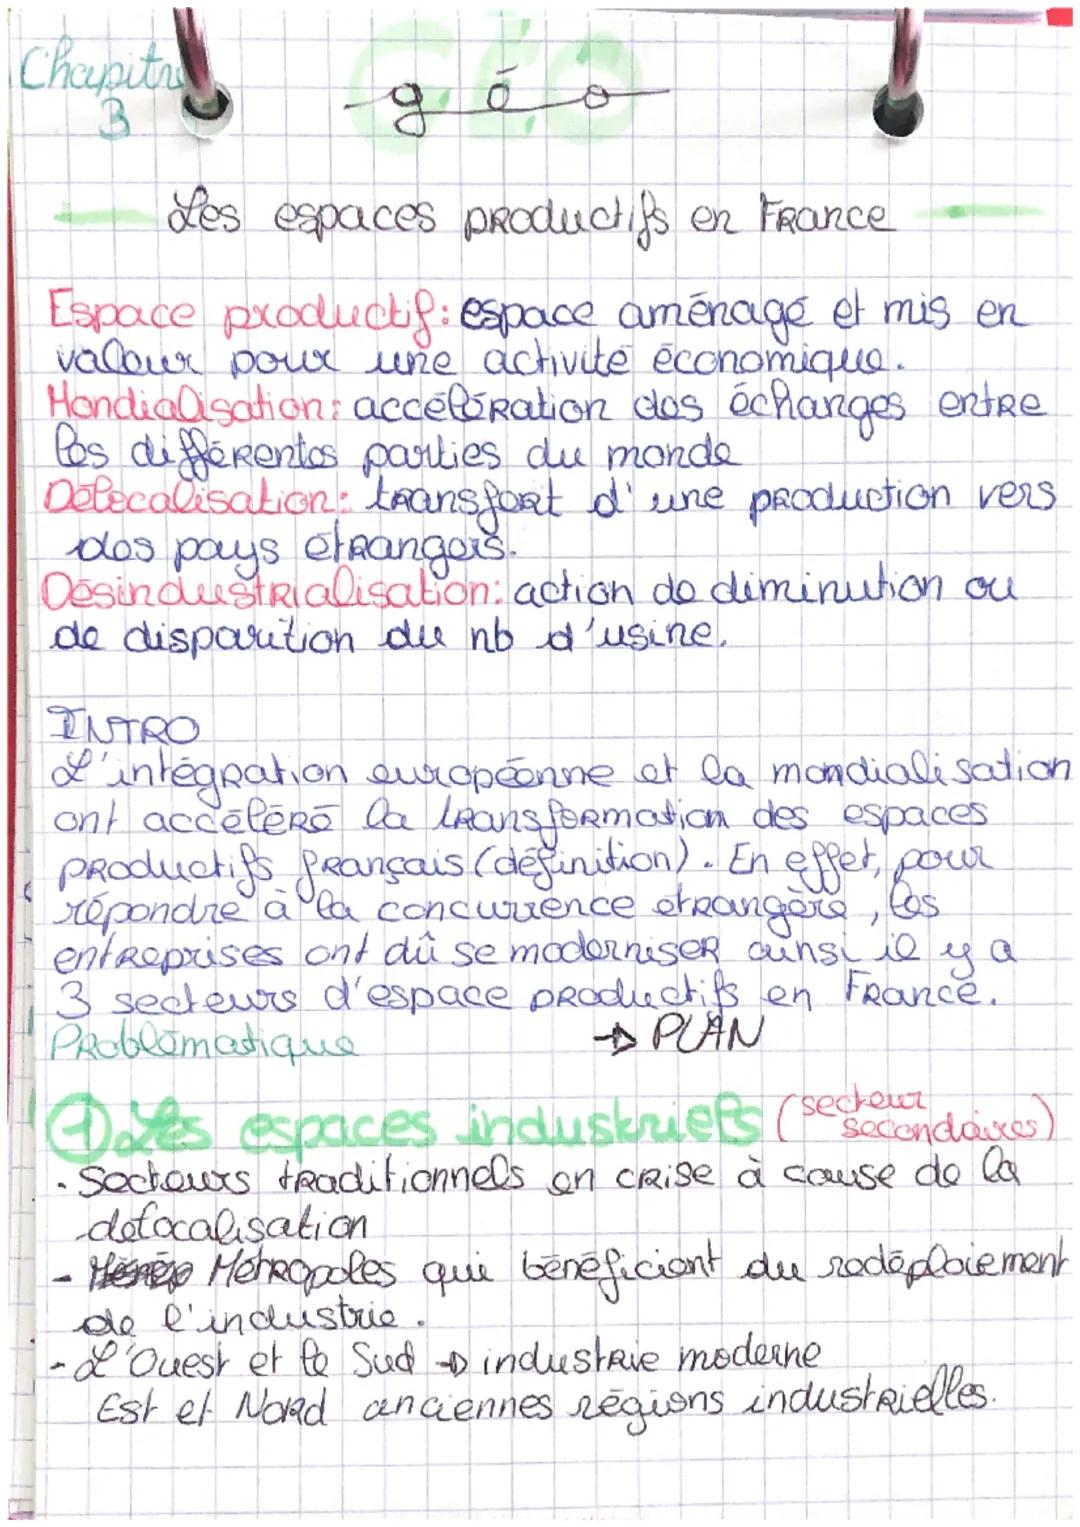 Chapitre
3
GÉO
géo
Les espaces productifs en France
Espace productif: espace aménagé et mis en
valeur pour une activité économique.
Mondialisation: accélération des échanges entre
les différentes parties du monde
Délocalisation: transfert d'une production vers
des pays étrangers.
Désindustrialisation: action de diminution ou
de disparition du nb d'usine.
INTRO
L'intégration européenne et la mondialisation
ont accéléré la transformation des espaces
productifs français (définition). En effet, pour
répondre à la concurrence étrangère, les
entreprises ont dû se moderniser ainsi il y a
3 secteurs d'espace productifs en France.
Problématique → PLAN
① Les espaces industriels (secteur
secondaires)
- Secteurs traditionnels en crise à cause de la
délocalisation
- Métropoles qui bénéficient du redéploiement
de l'industrie.
- L'Ouest et le Sud → industrie moderne
Est et Nord anciennes régions industrielles.